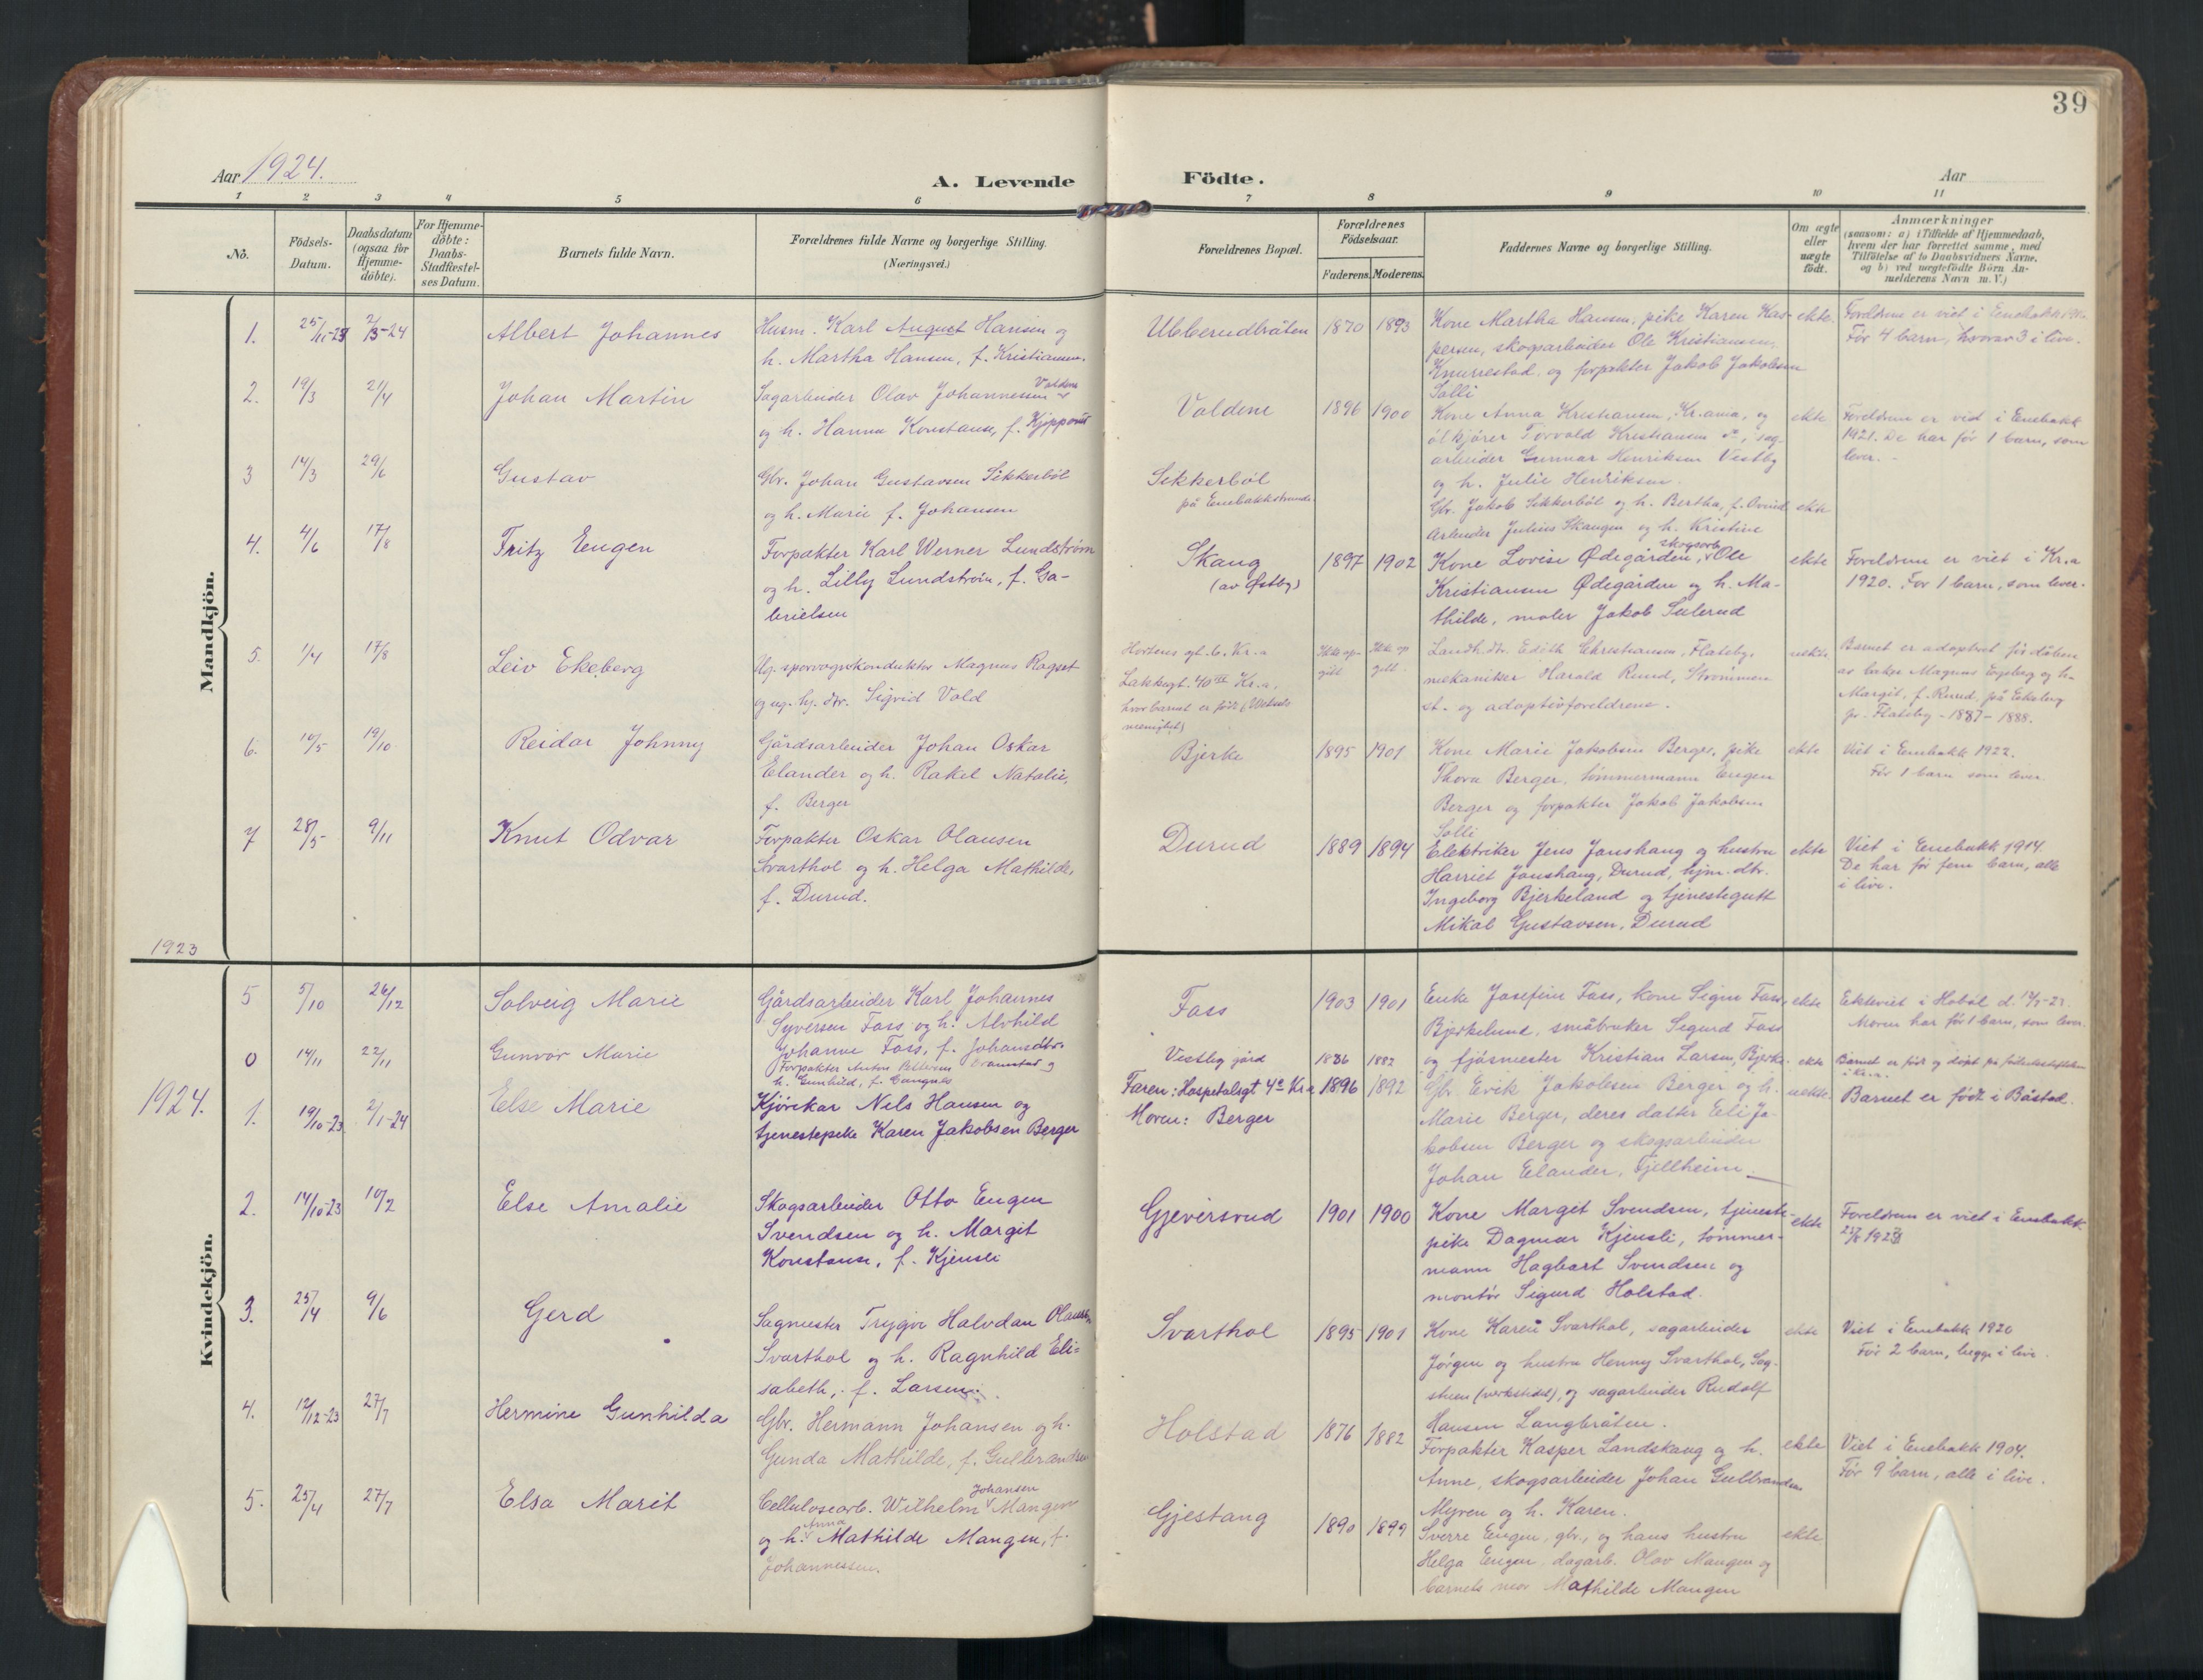 39
Aar 1924.
A. Levende
Födte.
Aar
1 2 3 4 5 6 7 8 9 10 11
No.
Födsels-
Datum.
Daabsdatum
(ogsaa for
Hjemme-
döbte).
For Hjemme-
döbte:
Daabs-
Stadfæstel-
ses Datum.
Barnets fulde Navn.
Forældrenes fulde Navne og borgerlige Stilling.
(Næringsvei.)
Forældrenes Bopæl.
Forældrenes
Födselsaar.
Faderens. Moderens.
Faddernes Navne og borgerlige Stilling.
Om ægte
eller
uægte
födt.
Anmærkninger
(saasom: a) i Tilfælde af Hjemmedaab,
hvem der har forrettet samme, med
Tilföielse af to Daabsvidners Navne,
og b) ved uægtefödte Börn An-
melderens Navn m. V.)
Mandkjön.
1. 25/11-23 2/3-24 Albert Johannes
Husm. Karl August Hansen og
h. Martha Hansen, f. Kristiansen.
Ubberudbråten 1870 1893
Kone Martha Hansen, pike Karen Kas-
persen, skogsarbeider Ole Kristiansen,
Knurrestad og forpakter Jakob Jakobsen
Solli
ekte.
Foreldrene er viet i Enebakk
Før 4 barn, hvorav 3 i live.
2. 19/3 21/4 Johan Martin
Sagarbeider Olav Johannessen Valdene
og h. Hanna Konstanse, f.
Valdene 1896 1900
Kone Anna Kristiansen, Kr.ania, og
ølkjører Torvald Kristiansen, sag-
arbeider Gunnar Henriksen Vestby
og h. Julie Henriksen.
ekte
Foreldrene er vid i Enebakk
1921. De har før 1 barn, som
lever. -
3 14/3 29/6 Gustav
Gbr. Johan Gustavsen Sikkerbøl
og h. Marie f. Johansen
Sikkerbøl
på Enebakkstranda
Gbr. Jakob Sikkerbøl og h. Bertha, f.
Arbeider Julius Skaugen og h. Kristine
ekte
4. 4/6 17/8 Fritz Eugen
Forpakter Karl Werner Lundstrøm
og h. Lilly Lundstrøm, f. Ga-
brielsen
Skaug
(av Østby)
1897 1902
Kone Lovise Ødegården, skogsarb. Ole
Kristiansen Ødegården og h. Ma-
thilde, maler Jakob Sulerud
ekte
Foreldrene er viet i Kr.a
1920. Før 1 barn, som lever.
5. 1/4 17/8 Leiv Ekeberg
Ug. sporvognskonduktør Magnus Rogset
og ug. hj. dtr. Sigrid Vold
Hortens gt. 6. Kr.a
Lakkegt. 40 III Kr.a,
hvor barnet er født (Wexels
menighet)
Ikke op-
gitt
Ikke op
gitt.
Landh. dtr. Edith Christiansen, Flateby,
mekaniker Harald Ruud, Strømmen
st. og adoptivforeldrene.
uekte.
Barnet er adoptert før dåben
av Magnus Engeberg og h.
Margit, f. Ruud, på Ekeberg
pr. Flateby - 1887 - 1888.
6. 14/5 19/10 Reidar Johnny
Gårdsarbeider Johan Oskar
Elander og h. Rakel Natalie,
f. Berger
Bjerke 1895 1901
Kone Marie Jakobsen Berger, pike
Thora Berger, tømmermann Eugen
Berger og forpakter Jakob Jakobsen
Solli
ekte
Viet i Enebakk 1922.
Før 1 barn som lever.
7 28/5 9/11 Knut Odvar
Forpakter Oskar Olausen
Svarthol og h. Helga Mathilde,
f. Durud.
Durud 1889 1894
Elektriker Jens Jonshaug og hustru
Harriet Jonshaug, Durud, hjm. dtr.
Ingeborg Bjerkeland og tjenestegutt
Mikal Gustavsen, Durud
ekte
Viet i Enebakk 1914.
De har før fem barn, alle
i live.
1923
Kvindekjön.
5 5/10 26/12 Solveig Marie
Gårdsarbeider Karl Johannes
Syversen Fass og h. Alvhild
Johanne Fass, f. Johansdtr.
Fass 1903 1901
Enke Josefine Fass, kone Signe Fass,
Bjerkelund, småbruker Sigurd Fass
og fjøsmester Kristian Larsen, Bjerke
ekte
Ekteviet i Hobøl d. 12/5-23
Moren har før 1 barn, som lever.
0 14/11 22/11 Gunvor Marie
Forpakter Anton Pettersen og
h. Gunhild, f.
Vestby gård 1886 1882
ekte
Barnet er født og døpt på fødselsstiftelsen
i Kr.a.
1924.
1. 19/10-23 2/1-24 Else Marie
Kjørekar Nils Hansen og
tjenestepike Karen Jakobsen Berger
Faren: Hospitalsgt 4a Kr.a 1896 1892
Moren: Berger
Gbr. Erik Jakobsen Berger og h.
Marie Berger, deres datter Eli Ja-
kobsen Berger og skogsarbeider
Johan Elander, Fjellheim.
uekte.
Barnet er født i Båstad.
2. 14/10-23 10/2 Else Amalie
Skogsarbeider Otto Eugen
Svendsen og h. Margit
Konstanse, f. Kjensli
Gjeversrud 1901 1900
Kone Margit Svendsen, tjeneste-
pike Dagmar Kjensli, tømmer-
mann Hagbart Svendsen og
montør Sigurd Holstad.
ekte
Foreldrene er viet i Enebakk
1923
3. 25/4 9/6 Gerd
Sagmester Trygve Halvdan Olausen
Svarthol og h. Ragnhild Eli-
sabeth, f. Larsen.
Svarthol 1895 1901
Kone Karen Svarthol, sagarbeider
Jørgen og hustru Henny Svarthol, Sag-
stuen (verkstedet), og sagarbeider Rudolf
Hansen Langbråten.
ekte
Viet i Enebakk 1920
Før 2 barn, begge i live.
4. 12/12-23 27/7 Hermine Gunhilda
Gbr. Hermann Johansen og h.
Gunda Mathilde, f. Gulbrandsen
Holstad 1876 1882
Forpakter Kasper Landskaug og h.
Anne, skogsarbeider Johan Gulbrandsen
Myren og h. Karen.
ekte
Viet i Enebakk 1904.
Før 9 barn, alle i live.
5. 25/4 27/7 Elsa Marit
Cellulosearb. Wilhelm Johansen Mangen
og h. Anna Mathilde Mangen, f.
Johannessen.
Gjestang 1890 1899
Sverre Engen, gbr., og hans hustru
Helga Engen, dagarb. Olav Mangen og
barnets mor Mathilde Mangen
ekte